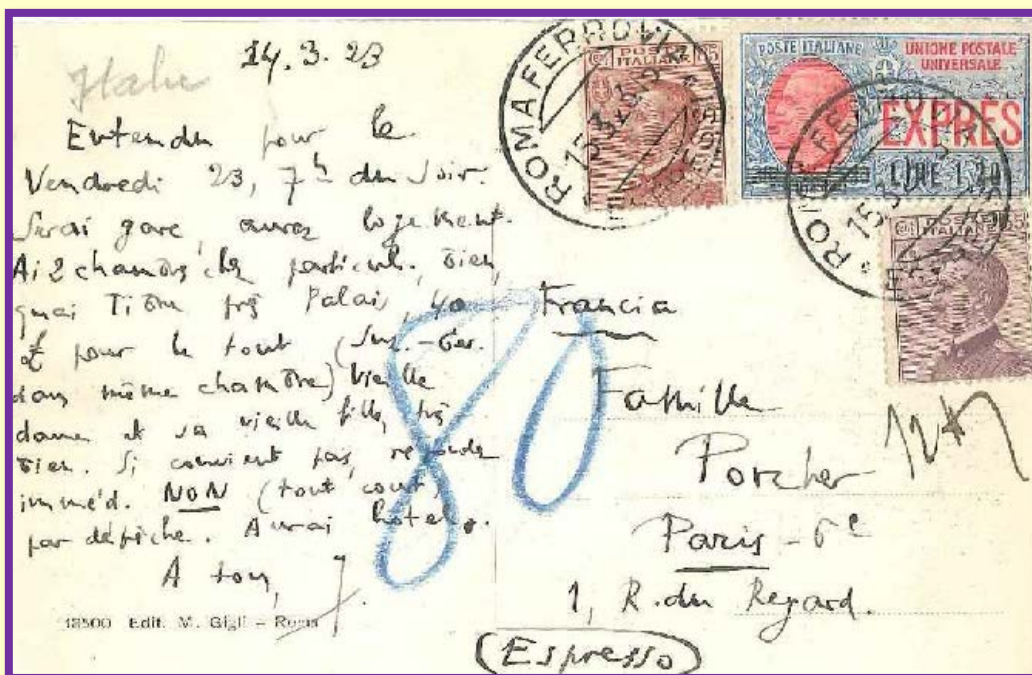 Italie
14.3.23
Entendu pour le
Vendredi 23, 7h du Soir.
Serai gare, aurez logement.
Ai 2 chambres chez particul. bien,
quai Tibre près Palais, 40
£ pour le tout
dans même chambre) vieille
dame et sa vieille fille, très
bien. Si convient pas, réponde
imméd. NON (tout court)
par dépêche. Aurai hotel.
A tous, J.
18500 Edit. M. Gigli - Roma
80
ROMA FERROVIA
15.3
POSTE ITALIANE
POSTE ITALIANE
UNIONE POSTALE
UNIVERSALE
EXPRES
LIRE 1,20
POSTE ITALIANE
Francia
Famille
Porcher
Paris - 6e
1, R. du Regard.
(Espresso)